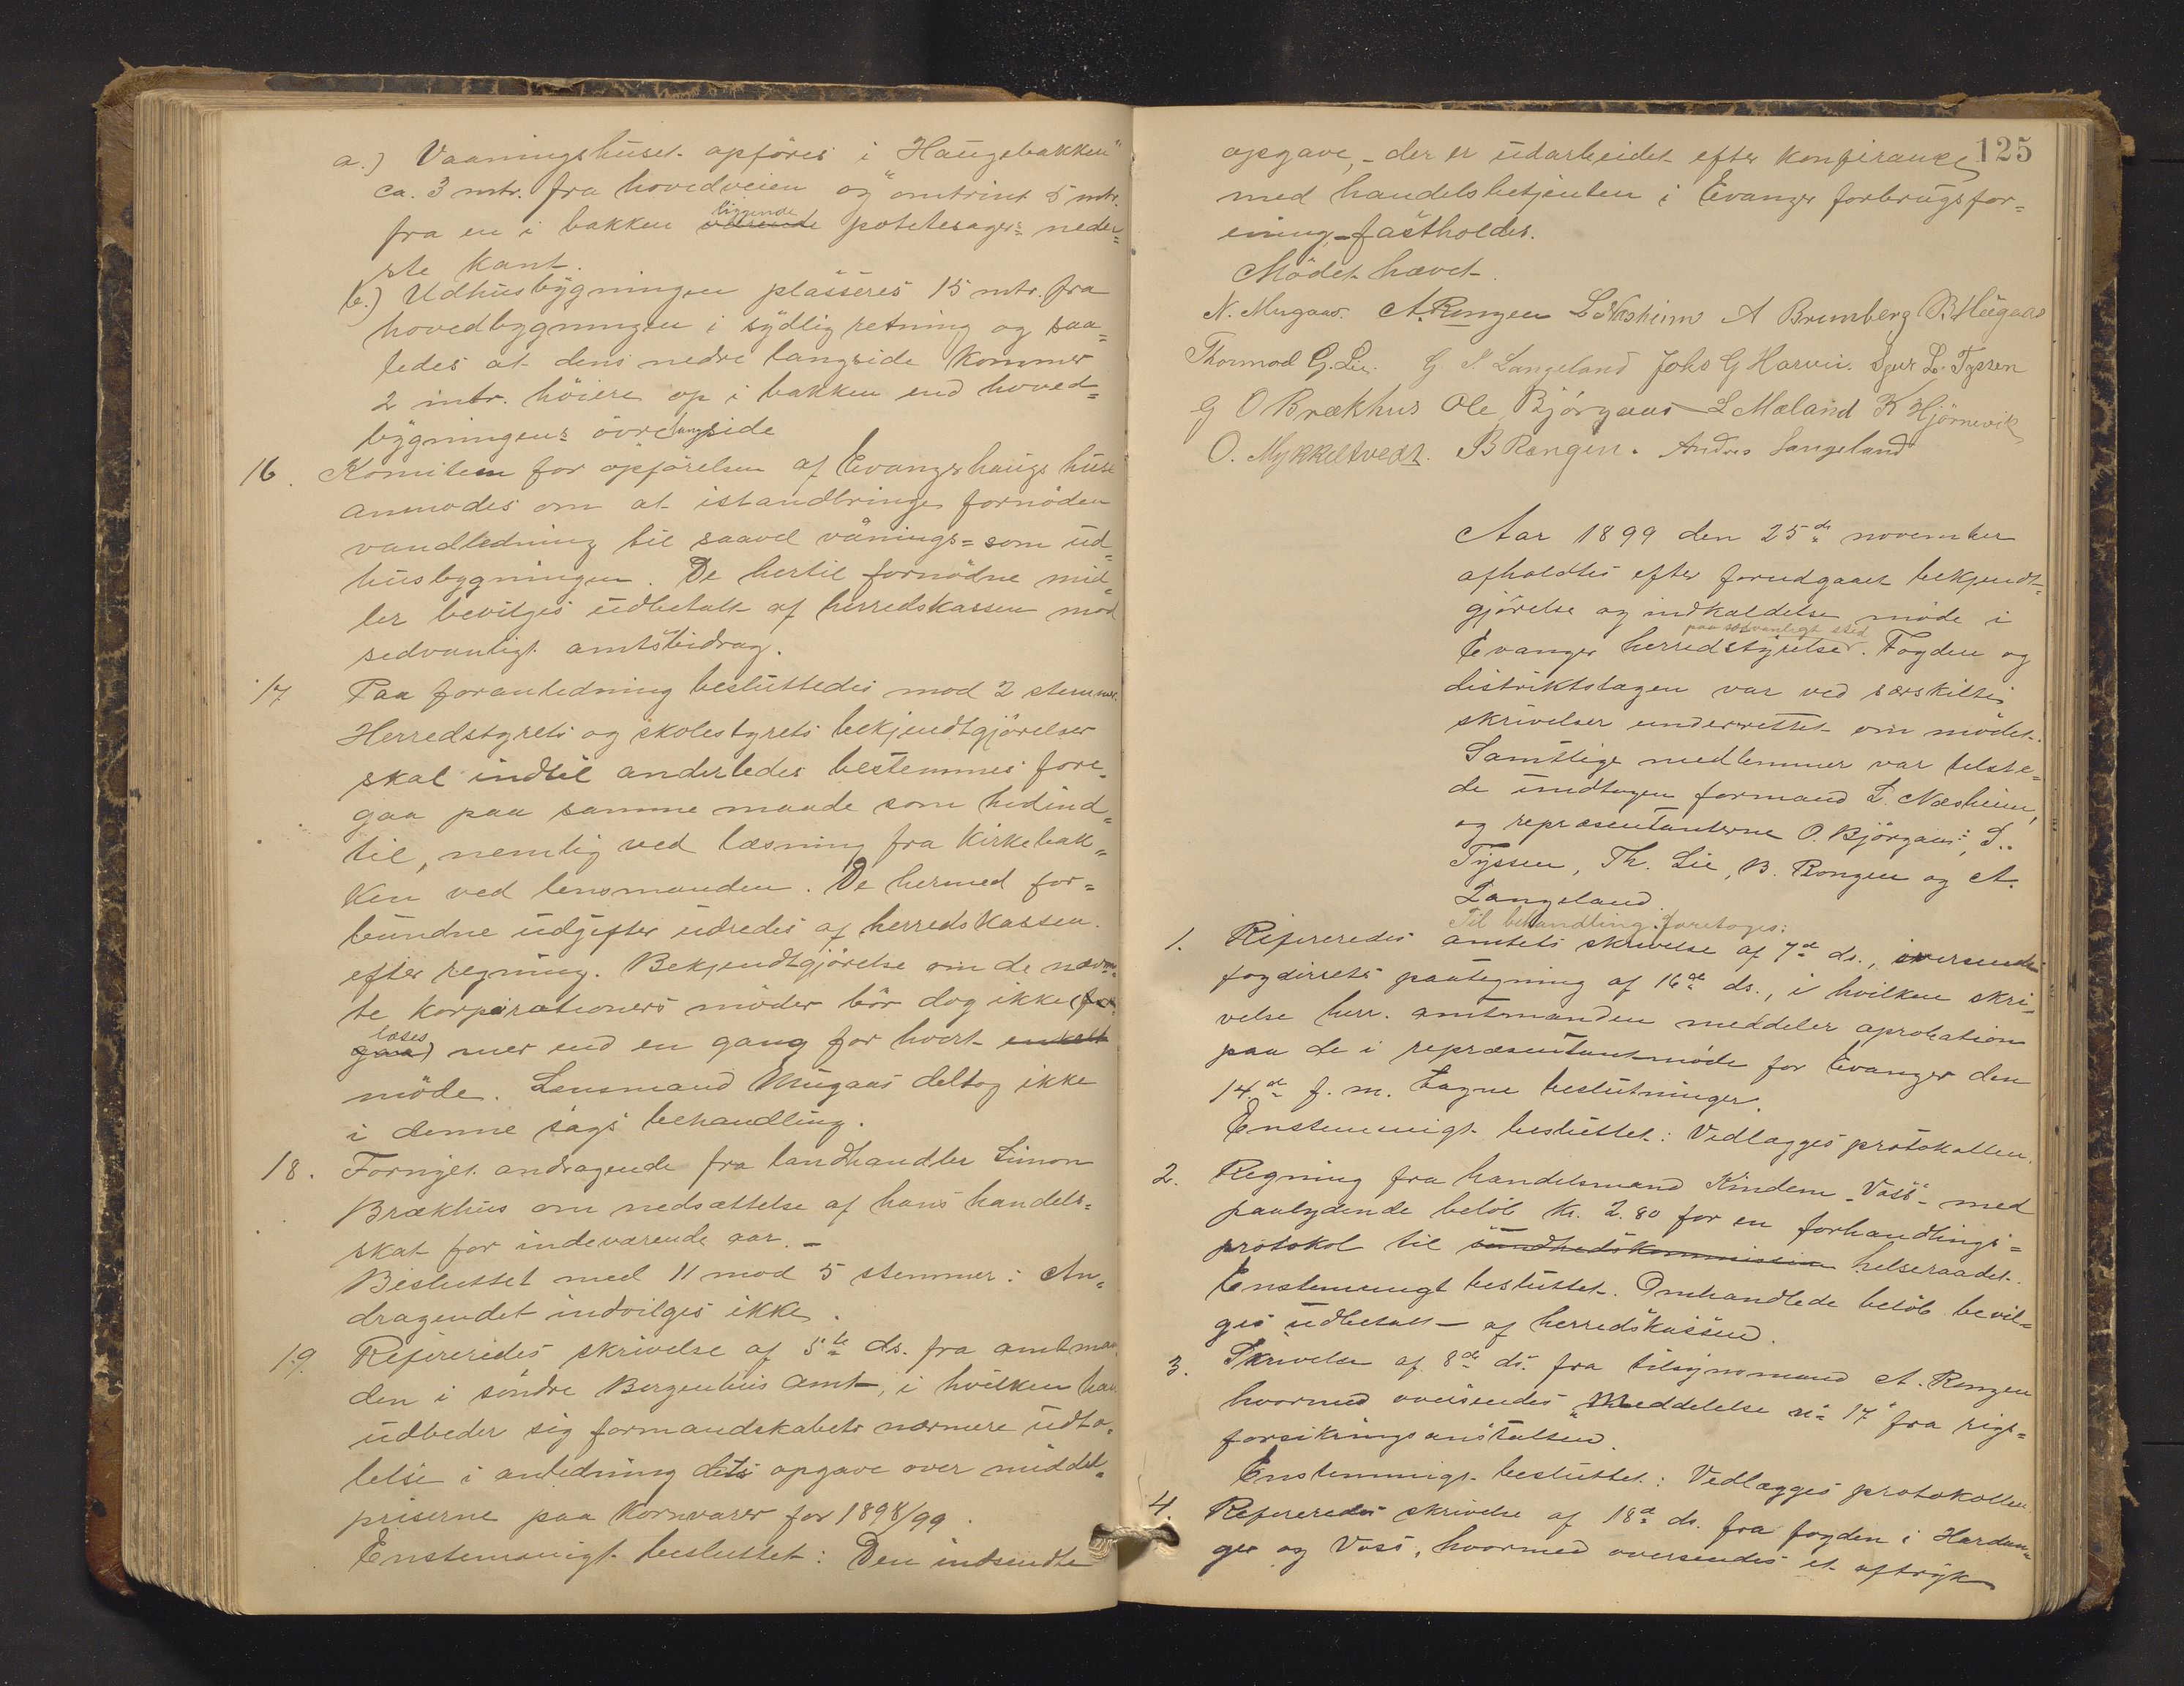 a.) Vaaningshuset opföres i "Haugebakken"
ca. 3 mtr. fra hovedveien og omtrint 5 mtr.
fra en i bakken værende liggende potetesagers neder=
ste kant.
b.) Udhusbygningen plasseres 15 mtr. fra
hovedbygningen i sydlig retning og saa=
ledes at dens nedre langside kommer
2 mtr. höiere op i bakken end hoved=
bygningens övre langside
16. Komiteen for opförelsen af Evangerhaugs huse
anmodes om at istandbringe fornöden
vandledning til saavel vånings= som ud=
husbygningen. De hertil fornödne mid=
ler bevilges udbetalt af herredskassen mod
sedvanligt amtsbidrag.
17 Paa foranledning besluttedes mod 2 stemmer.
Herredstyrets og skolestyrets bekjendtgjörelser
skal indtil anderledes bestemmes fore=
gaa paa samme maade som hidind=
til, nemlig ved læsning fra kirkebak=
ken ved lensmanden. De hermed for=
bundne udgifter udredes af herredskassen
efter regning. Bekjendtgjörelse om de nævn=
te korporationers möder bör dog ikke (fore=
gaa) læses mer end en gang for hvert enkelt
möde. Lensmand Mugaas deltog ikke
i denne sags behandling.
18. Fornyet andragende fra landhandler Simon
Brækhus om nedsættelse af hans handels=
skat for indeværende aar. -
Besluttet med 11 mod 5 stemmer: An=
dragendet indvilges ikke.
19. Refereredes skrivelse af 5te ds. fra amtman
den i söndre Bergenhus amt, i hvilken han
udbeder sig formandskabets nærmere udta=
lelse i anledning dets opgave over middel=
priserne paa kornvarer for 1898/99.
Enstemmigt besluttet: Den indsendte
125
opgave, - der er udarbeidet efter konferanse
med handelsbetjenten i Evanger forbrugsfor=
ening - fastholdes.
Mödet hævet.
N. Mugaas. A. Rongen L Næsheim A Brunberg B. Haugaas
Thormod G. Lie. G S. Langeland Johs G Horvei. Sjur L. Tyssen
G O Brækhus Ole Bjørgaas L Mæland K Hjørnevik
O. Mykkeltvedt. B Rongen. Andres Langeland
Aar 1899 den 25de november
afholdtes efter forudgaaet bekjendt=
gjörelse og indkaldelse möde i
paa sedvanligt sted
Evanger herredstyrelse. Fogden og
distriktslægen var ved særskilte
skrivelser underrettet om mödet.
Samtlige medlemmer var tilste=
de undtagen formand L. Næsheim,
og repræsentanterne O. Bjørgaas, S.
Tyssen, Th. Lie, B. Rongen og A.
Langeland.
Til behandling foretoges:
1. Refereredes amtets skrivelse af 7de ds., oversendt
fogderiets paategning af 16de ds., i hvilken skri=
velse herr. amtmanden meddeler aprobation
paa de i repræsentantmöde for Evanger den
14de f. m. tagne beslutninger.
Enstemmigt besluttet: Vedlægges protokollen.
2. Regning fra handelsmand Kindem "Voss" med
paalydende belöb kr. 2.80 for en forhandlings=
protokol til sundhedskommission helseraadet.
Enstemmigt besluttet. Omhandlede belöb bevil=
ges udbetalt af herredskassen.
3. Skrivelse af 8de ds. fra tilsynsmand A. Rongen
hvormed oversendes "Meddelelse no 17" fra rigs=
forsikringsanstalten.
Enstemmigt besluttet: Vedlægges protokollen
4. Refereredes skrivelse af 18de ds. fra fogden i Hardan=
ger og Voss, hvormed oversendes et aftryk